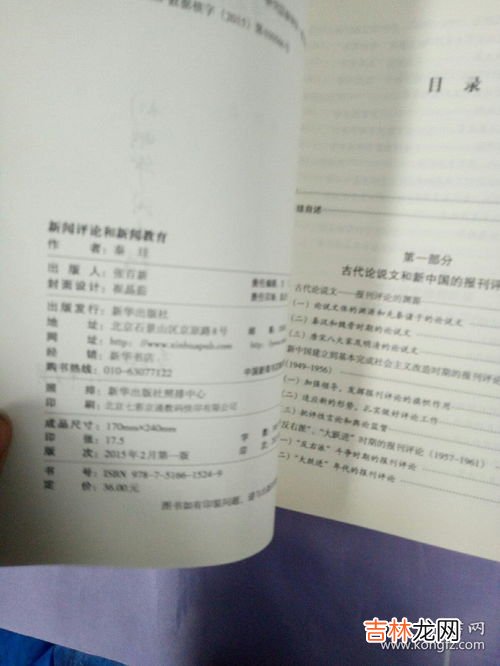 数据核字(2015)第
新闻评论和新闻教育
作 者:秦 珪
出 版 人:张百新
封面设计:崔晶茹
责任编辑
责任印
出版发行:新华出版社
地 址:北京石景山区京原路8号
网 址:http://www.xinhuapub.com
经 销:新华书店
购书热线:010-63077122
照 排:新华出版社照排中心
印 刷:北京七彩京通数码快印有限公司
成品尺寸:170mm×240mm
印 张:17.5
字 数
版 次:2015年2月第一版
印 次
书 号:ISBN 978-7-5166-1524-9
定 价:36.00元
图书如有印装问题,请与
目 录
自述
第一部分
古代论说文和新中国的报刊评
古代论说文——报刊评论的渊源
(一)论说文体的渊源和先秦诸子的论说文
(二)秦汉和魏晋时期的论说文
(三)唐宋八大家及明清的论说文
新中国建立到基本完成社会主义改造时期的报刊评
(1949-1956)
(一)加强领导,发挥报刊评论的旗帜作用
(二)适应新的形势,扎实做好评论工作
(三)批评性言论和舆论监督
反右派”、“大跃进”时期的报刊评论(1957-1961)
一)“反右派”斗争时期的报刊评论
二)“大跃进”年代的报刊评论
吉林龙网
www.kongfz.com